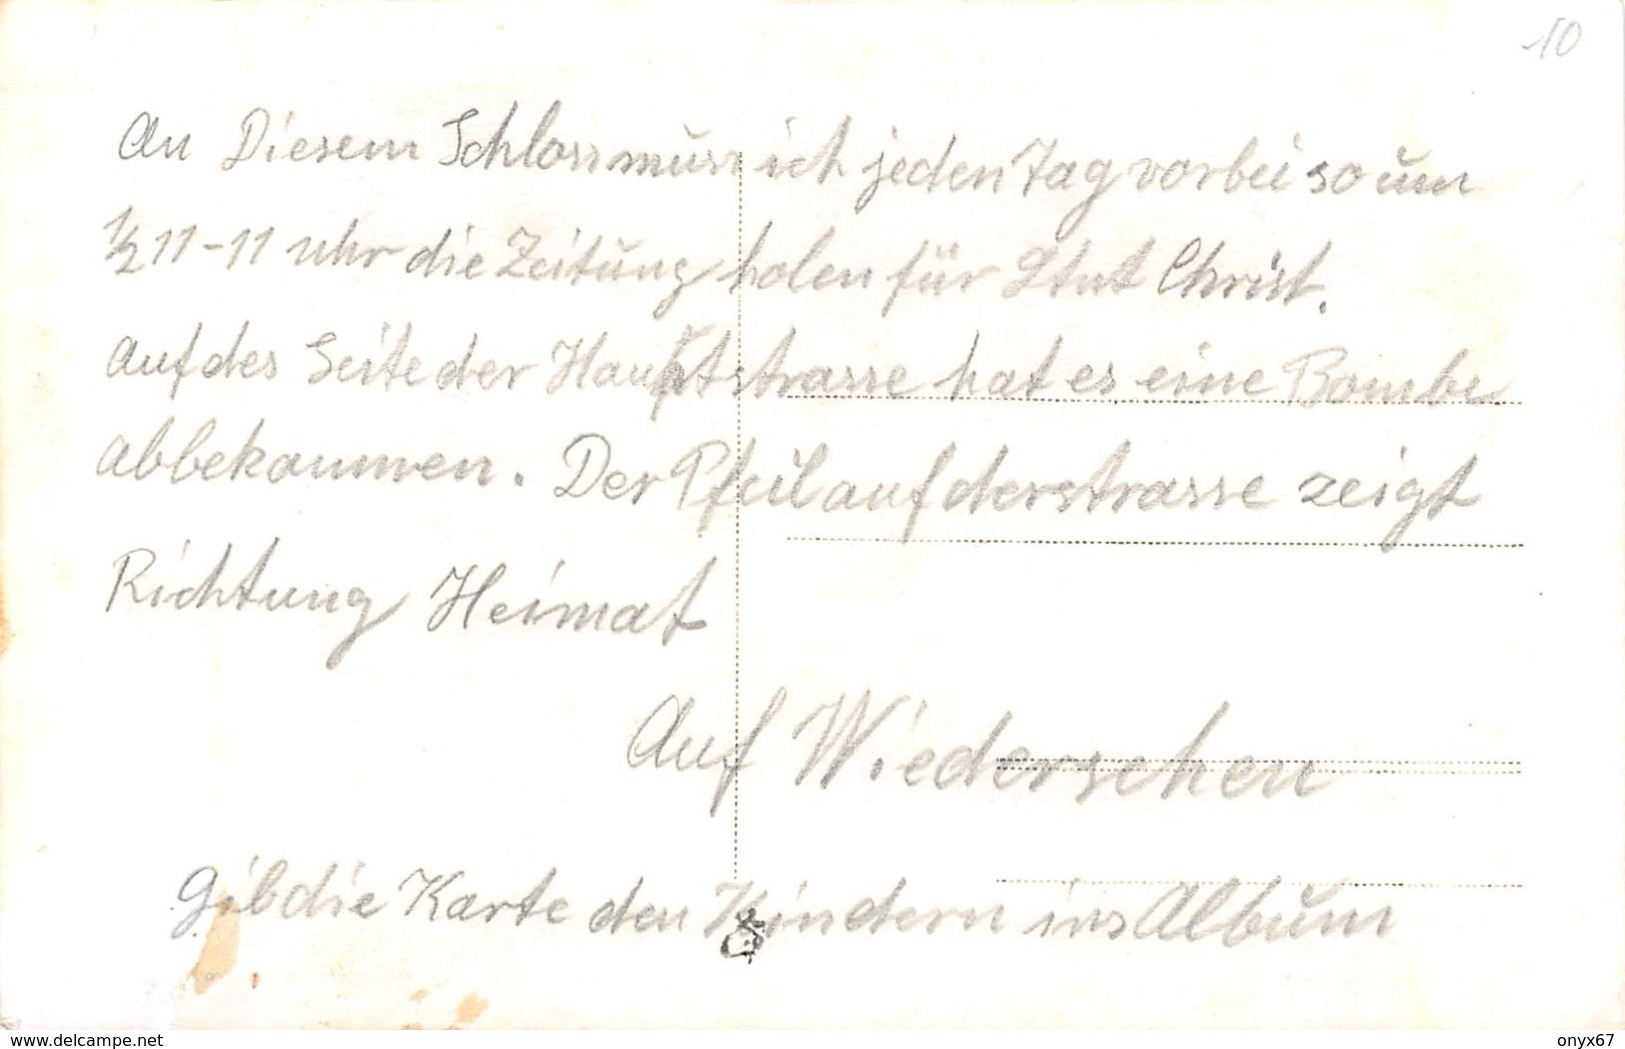 10
An Diesem Schloss muss ich jeden Tag vorbei so um
½ 11-11 uhr die Zeitung holen für Christ.
auf des Seite der Hauptstrasse hat es eine Bombe
abbekommen. Der Pfeil auf der strasse zeigt
Richtung Heimat
Auf Wiedersehen
Gib die Karte den Kindern ins Album
delcampe.net
onyx67